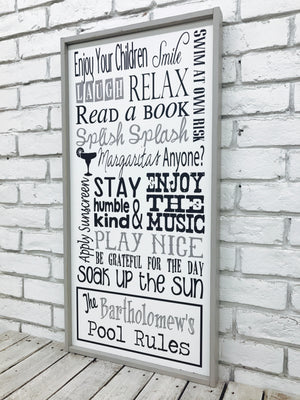 Enjoy Your Children Smile
SWIM AT OWN RISK
LAUGH RELAX
READ A BOOK
Splish Splash
Margaritas Anyone?
Apply Sunscreen
STAY
humble &
kind
ENJOY
THE
MUSIC
PLAY NICE
BE GRATEFUL FOR THE DAY
SOAK UP THE SUN
The Bartholomew's
Pool Rules